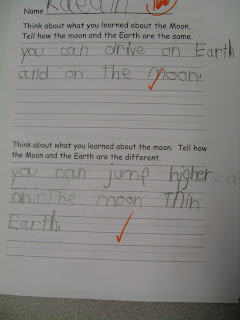 Name Kaedin 100
Think about what you learned about the Moon.
Tell how the moon and the Earth are the same.
you can drive on Earth
and on The Moon.
Think about what you learned about the moon. Tell how
the Moon and the Earth are the different.
you can jump higher on
The moon Thin
Earth.